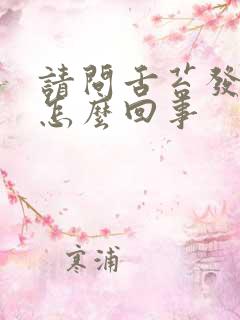 請問舌苔發
怎麼回事
寒浦